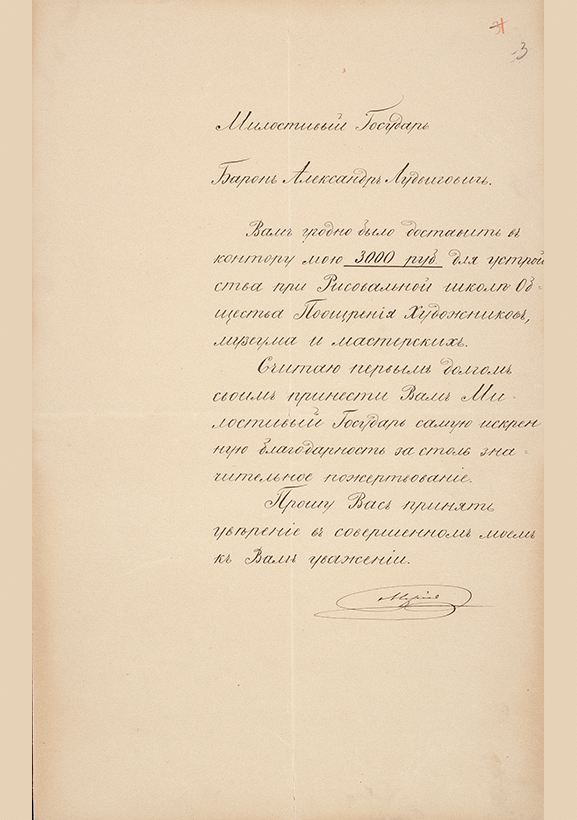 3
Милостивый Государь
Баронъ Александръ Лудвиговичъ.
Вамъ угодно было доставить въ
контору мою 3000 руб. для устрой
ства при Рисовальной школѣ Об=
щества Поощренія Художниковъ,
музеума и мастерскихъ.
Считаю первымъ долгомъ
своимъ принести Вамъ Ми-
лостивый Государь самую искрен
ную благодарность за столь зна=
чительное пожертвованіе.
Прошу Васъ принять
увѣреніе въ совершенномъ моемъ
къ Вамъ уваженіи.